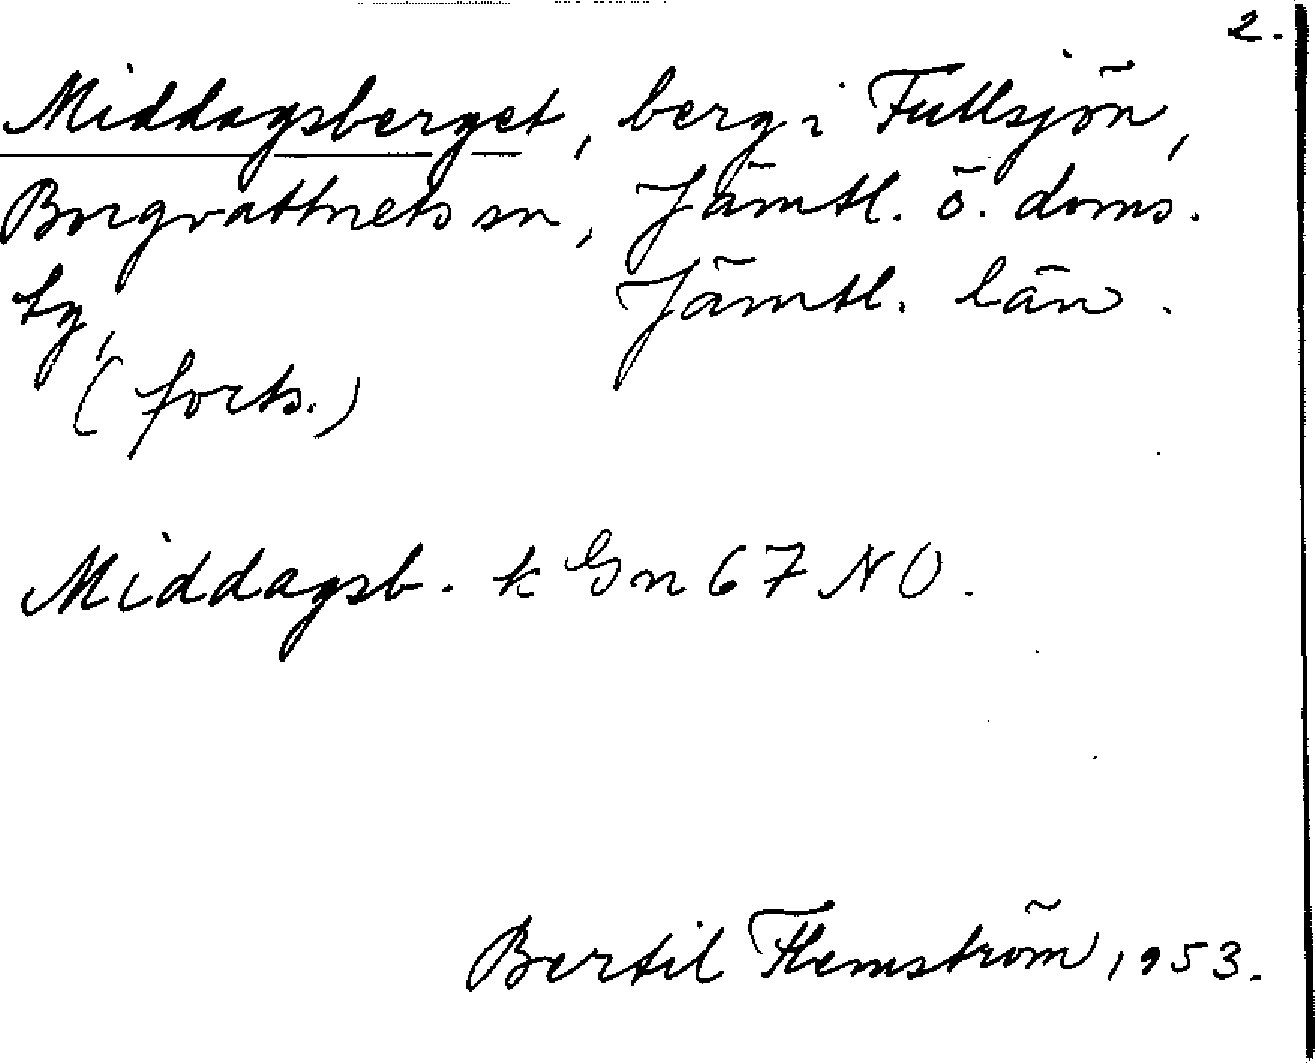 2.
Middagsberget, berg i Fullsjön,
Borgvattnets sn, Jämtl. ö. doms.
lg, Jämtl. län.
(forts.)
Middagsb. k Gn 67 NO.
Bertil Flemström 1953.